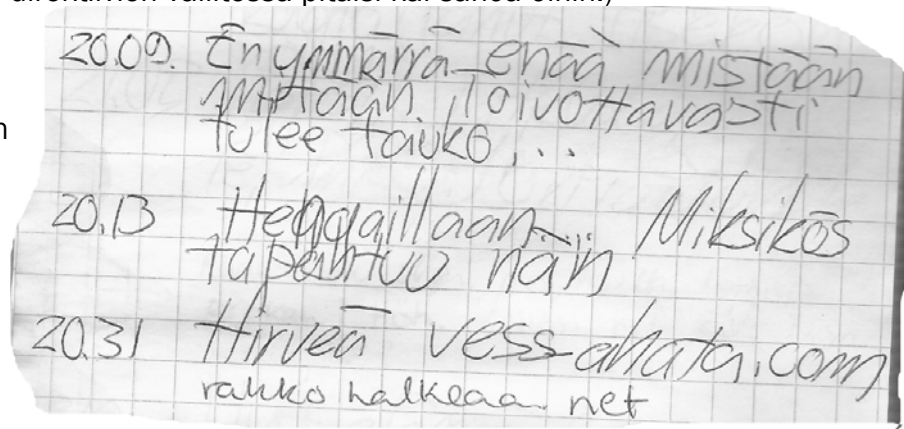 vallitessa pitäisi kai sanoa
n
20.09. En ymmärrä enää mistään
mitään, toivottavasti
tulee tauko...
20.13 Hengaillaan... Miksikös
tapahtuu näin
20.31 Hirveä vessahätä.com
rakko halkeaa.net